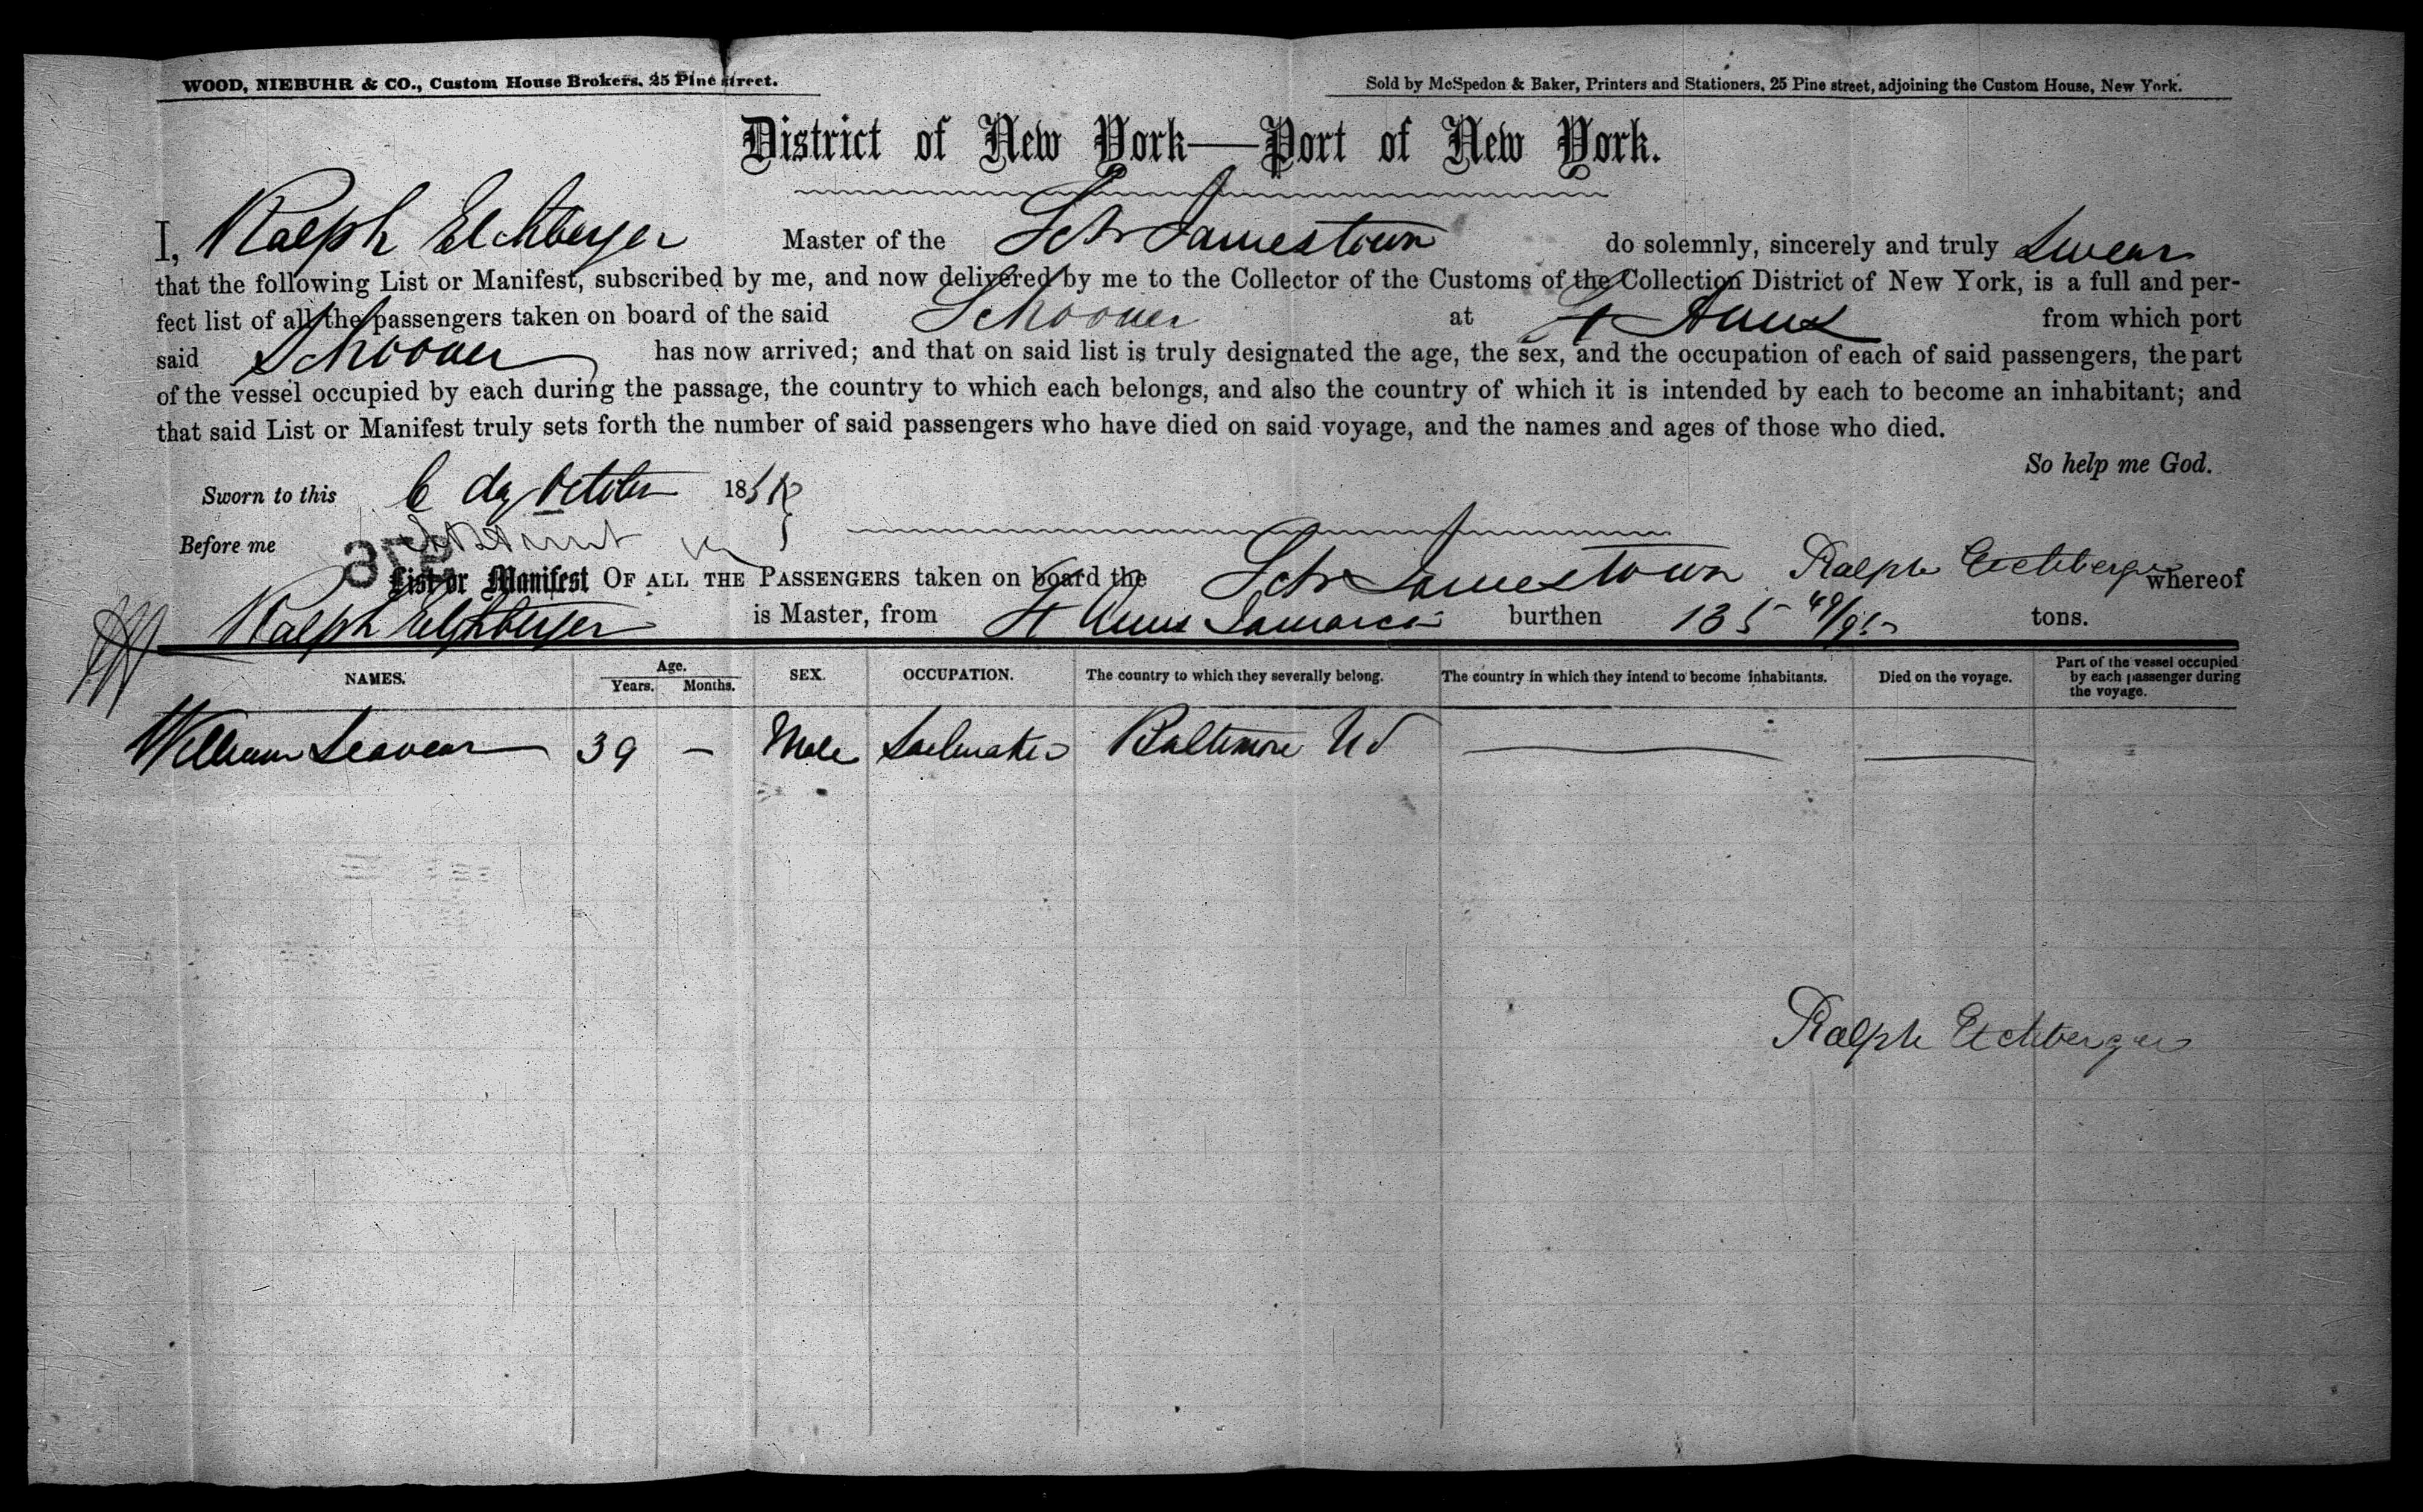 WOOD, NIEBUHR & CO., Custom House Brokers, 25 Pine street.
Sold by McSpedon & Baker, Printers and Stationers, 25 Pine street, adjoining the Custom House, New York.
District of New York—Port of New York.
I, Ralph Eichberger Master of the Schr Jamestown do solemnly, sincerely and truly Swear
that the following List or Manifest, subscribed by me, and now delivered by me to the Collector of the Customs of the Collection District of New York, is a full and per-
fect list of all the passengers taken on board of the said Schooner at St Anns from which port
said Schooner has now arrived; and that on said list is truly designated the age, the sex, and the occupation of each of said passengers, the part
of the vessel occupied by each during the passage, the country to which each belongs, and also the country of which it is intended by each to become an inhabitant; and
that said List or Manifest truly sets forth the number of said passengers who have died on said voyage, and the names and ages of those who died.
So help me God.
Sworn to this 6 day October 185
Before me
Ralph Etchberger
List or Manifest OF ALL THE PASSENGERS taken on board the Schr Jamestown whereof
Ralph Eichberger is Master, from St Anns Jamaica burthen 135 49/95 tons.
NAMES. Age. Years. Months. SEX. OCCUPATION. The country to which they severally belong. The country in which they intend to become inhabitants. Died on the voyage. Part of the vessel occupied by each passenger during the voyage.
William Seavear 39 — Male Sailmaker Baltimore Md
Ralph Etchberger